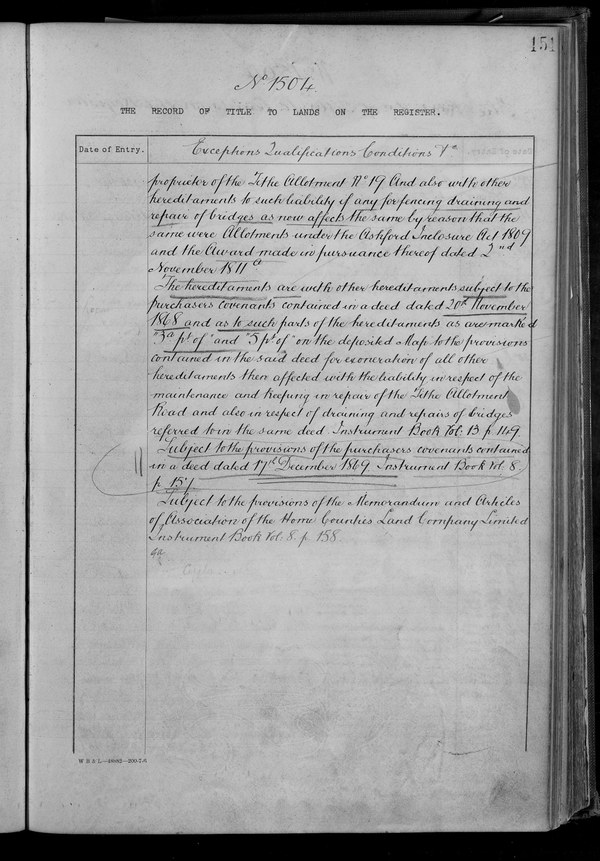 151
No 1504
THE RECORD OF TITLE TO LANDS ON THE REGISTER.
Date of Entry.
Exceptions Qualifications Conditions &c
proprietor of the Tithe Allotment No 19 And also with other
hereditaments to such liability if any for fencing draining and
repair of bridges as now affects the same by reason that the
same were Allotments under the Ashford Inclosure Act 1809
and the Award made in pursuance thereof dated 2nd
November 1811
The hereditaments are with other hereditaments subject to the
purchasers covenants contained in a deed dated 20th November
1868 and as to such parts of the hereditaments as are marked
"3a pt of" and "5 pt of" on the deposited Map to the provisions
contained in the said deed for exoneration of all other
hereditaments then affected with the liability in respect of the
maintenance and keeping in repair of the Tithe Allotment
Road and also in respect of draining and repairs of bridges
referred to in the same deed. Instrument Book Vol. 13 p. 149.
Subject to the provisions of the purchasers covenants contained
in a deed dated 17th December 1869. Instrument Book Vol. 8.
p. 157
Subject to the provisions of the Memorandum and Articles
of Association of the Home Counties Land Company Limited
Instrument Book Vol. 8. p. 158
W B & L